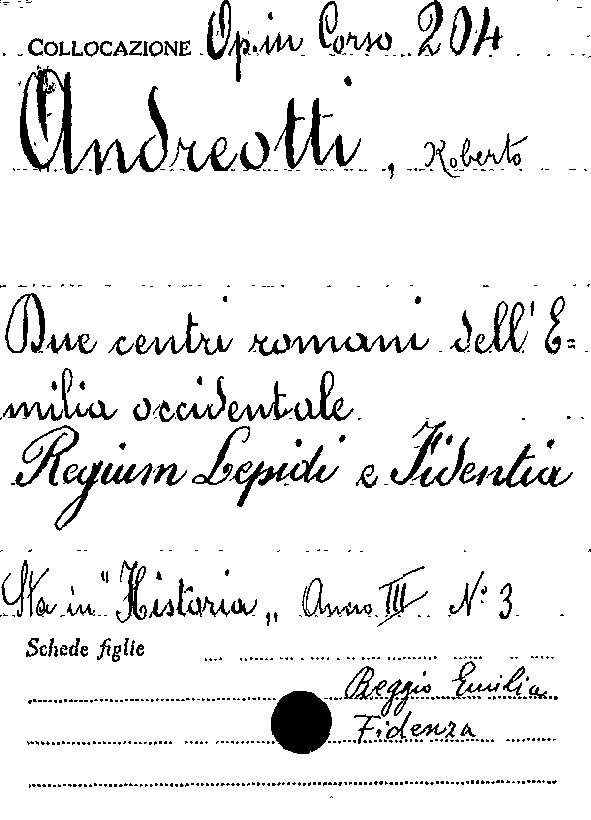 COLLOCAZIONE Op. in Corso 204
Andreotti, Roberto
Due centri romani dell'E=
milia occidentale
Regium Lepidi e Fidentia
Sta in "Historia„ Anno III N° 3
Schede figlie
Reggio Emilia
Fidenza